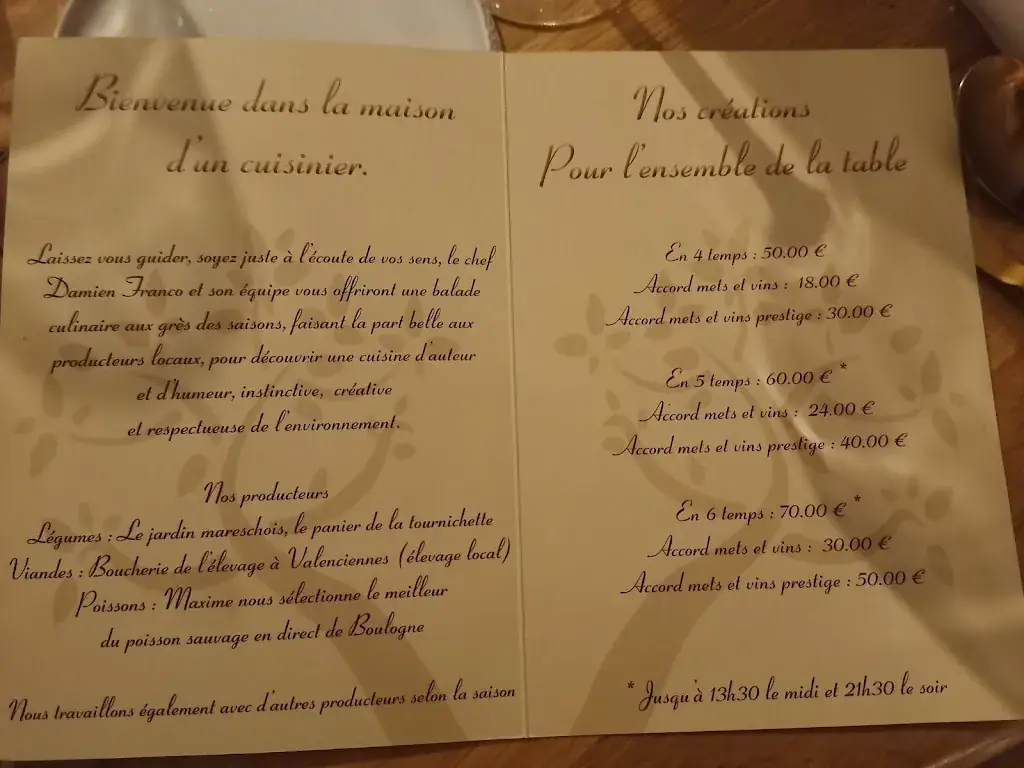 Bienvenue dans la maison
d'un cuisinier.
Laissez vous guider, soyez juste à l'écoute de vos sens, le chef
Damien Franco et son équipe vous offriront une balade
culinaire aux grès des saisons, faisant la part belle aux
producteurs locaux, pour découvrir une cuisine d'auteur
et d'humeur, instinctive, créative
et respectueuse de l'environnement.
Nos producteurs
Légumes : Le jardin mareschois, le panier de la tournichette
Viandes : Boucherie de l'élevage à Valenciennes (élevage local)
Poissons : Maxime nous sélectionne le meilleur
du poisson sauvage en direct de Boulogne
Nous travaillons également avec d'autres producteurs selon la saison
Nos créations
Pour l'ensemble de la table
En 4 temps : 50.00 €
Accord mets et vins : 18.00 €
Accord mets et vins prestige : 30.00 €
En 5 temps : 60.00 € *
Accord mets et vins : 24.00 €
Accord mets et vins prestige : 40.00 €
En 6 temps : 70.00 € *
Accord mets et vins : 30.00 €
Accord mets et vins prestige : 50.00 €
* Jusqu'à 13h30 le midi et 21h30 le soir